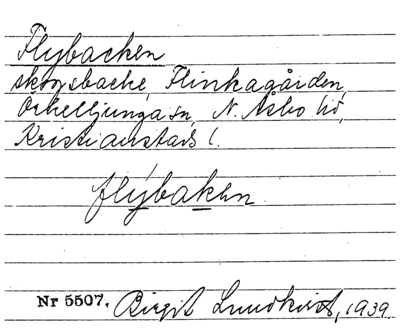 Flybacken
skogsbacke, Flinkagården,
Örkelljunga sn, N. Åsbo hd,
Kristianstads l.
flýbaken
Nr 5507. Birgit Lundkvist, 1939.